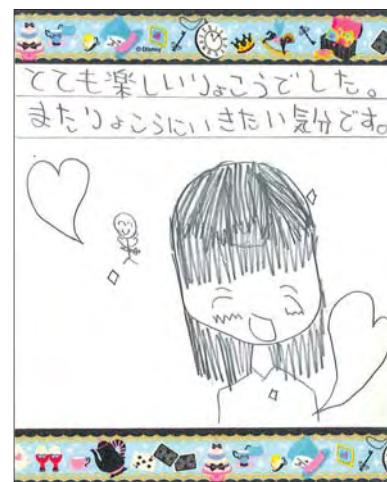 ©Disney
とても楽しいりょこうでした。
またりょこうにいきたい気分です。